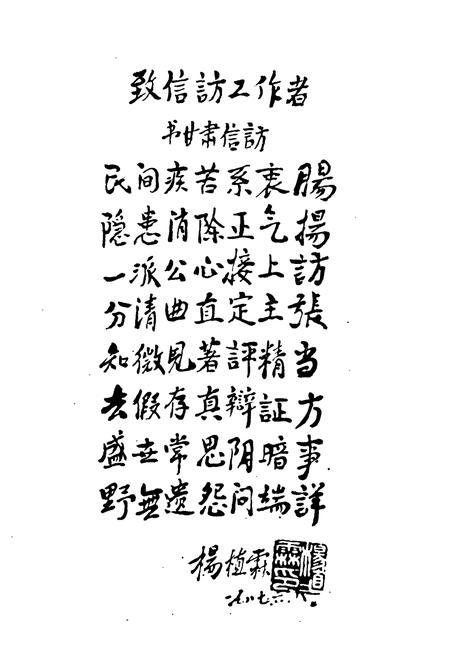 致信訪工作者
书甘肃信訪
民间疾苦系衷腸
隐患消除正气揚
一派公心接上訪
分清曲直定主張
知微見著評精当
去假存真辯証方
盛世常思阴暗事
野無遗怨问端詳
楊植霖
一九八七.六.